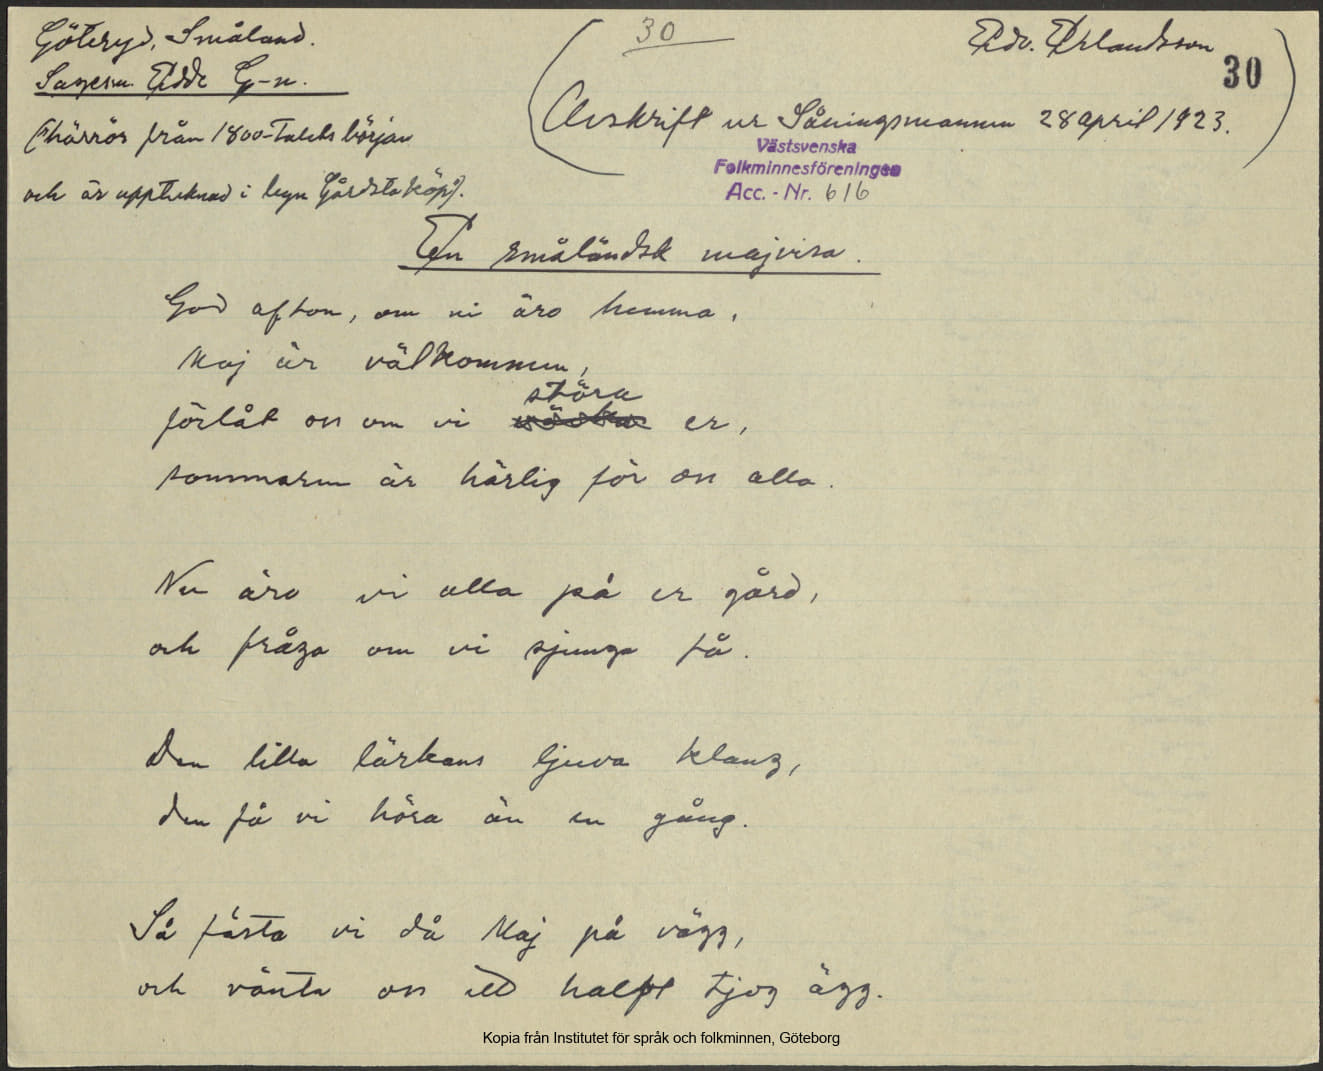 Göteryd, Småland.
30
Edv. Erlandsson
30
Sagesm. Edde G-n.
(härrör från 1800-talets början
(Avskrift ur Såningsmannen 28 april 1923.)
Västsvenska
Folkminnesföreningen
Acc. - Nr. 616
och är upptecknad i byn Gårdsköp).
En småländsk majvisa.
God afton, om ni äro hemma,
Maj är välkommen,
störa
förlåt oss om vi väcka er,
sommaren är härlig för oss alla.
Nu äro vi alla på er gård,
och fråga om vi sjunga få.
Den lilla lärkans ljuva klang,
den få vi höra än en gång.
Så fästa vi då Maj på vägg,
och vänta oss ett halft tjog ägg.
Kopia från Institutet för språk och folkminnen, Göteborg